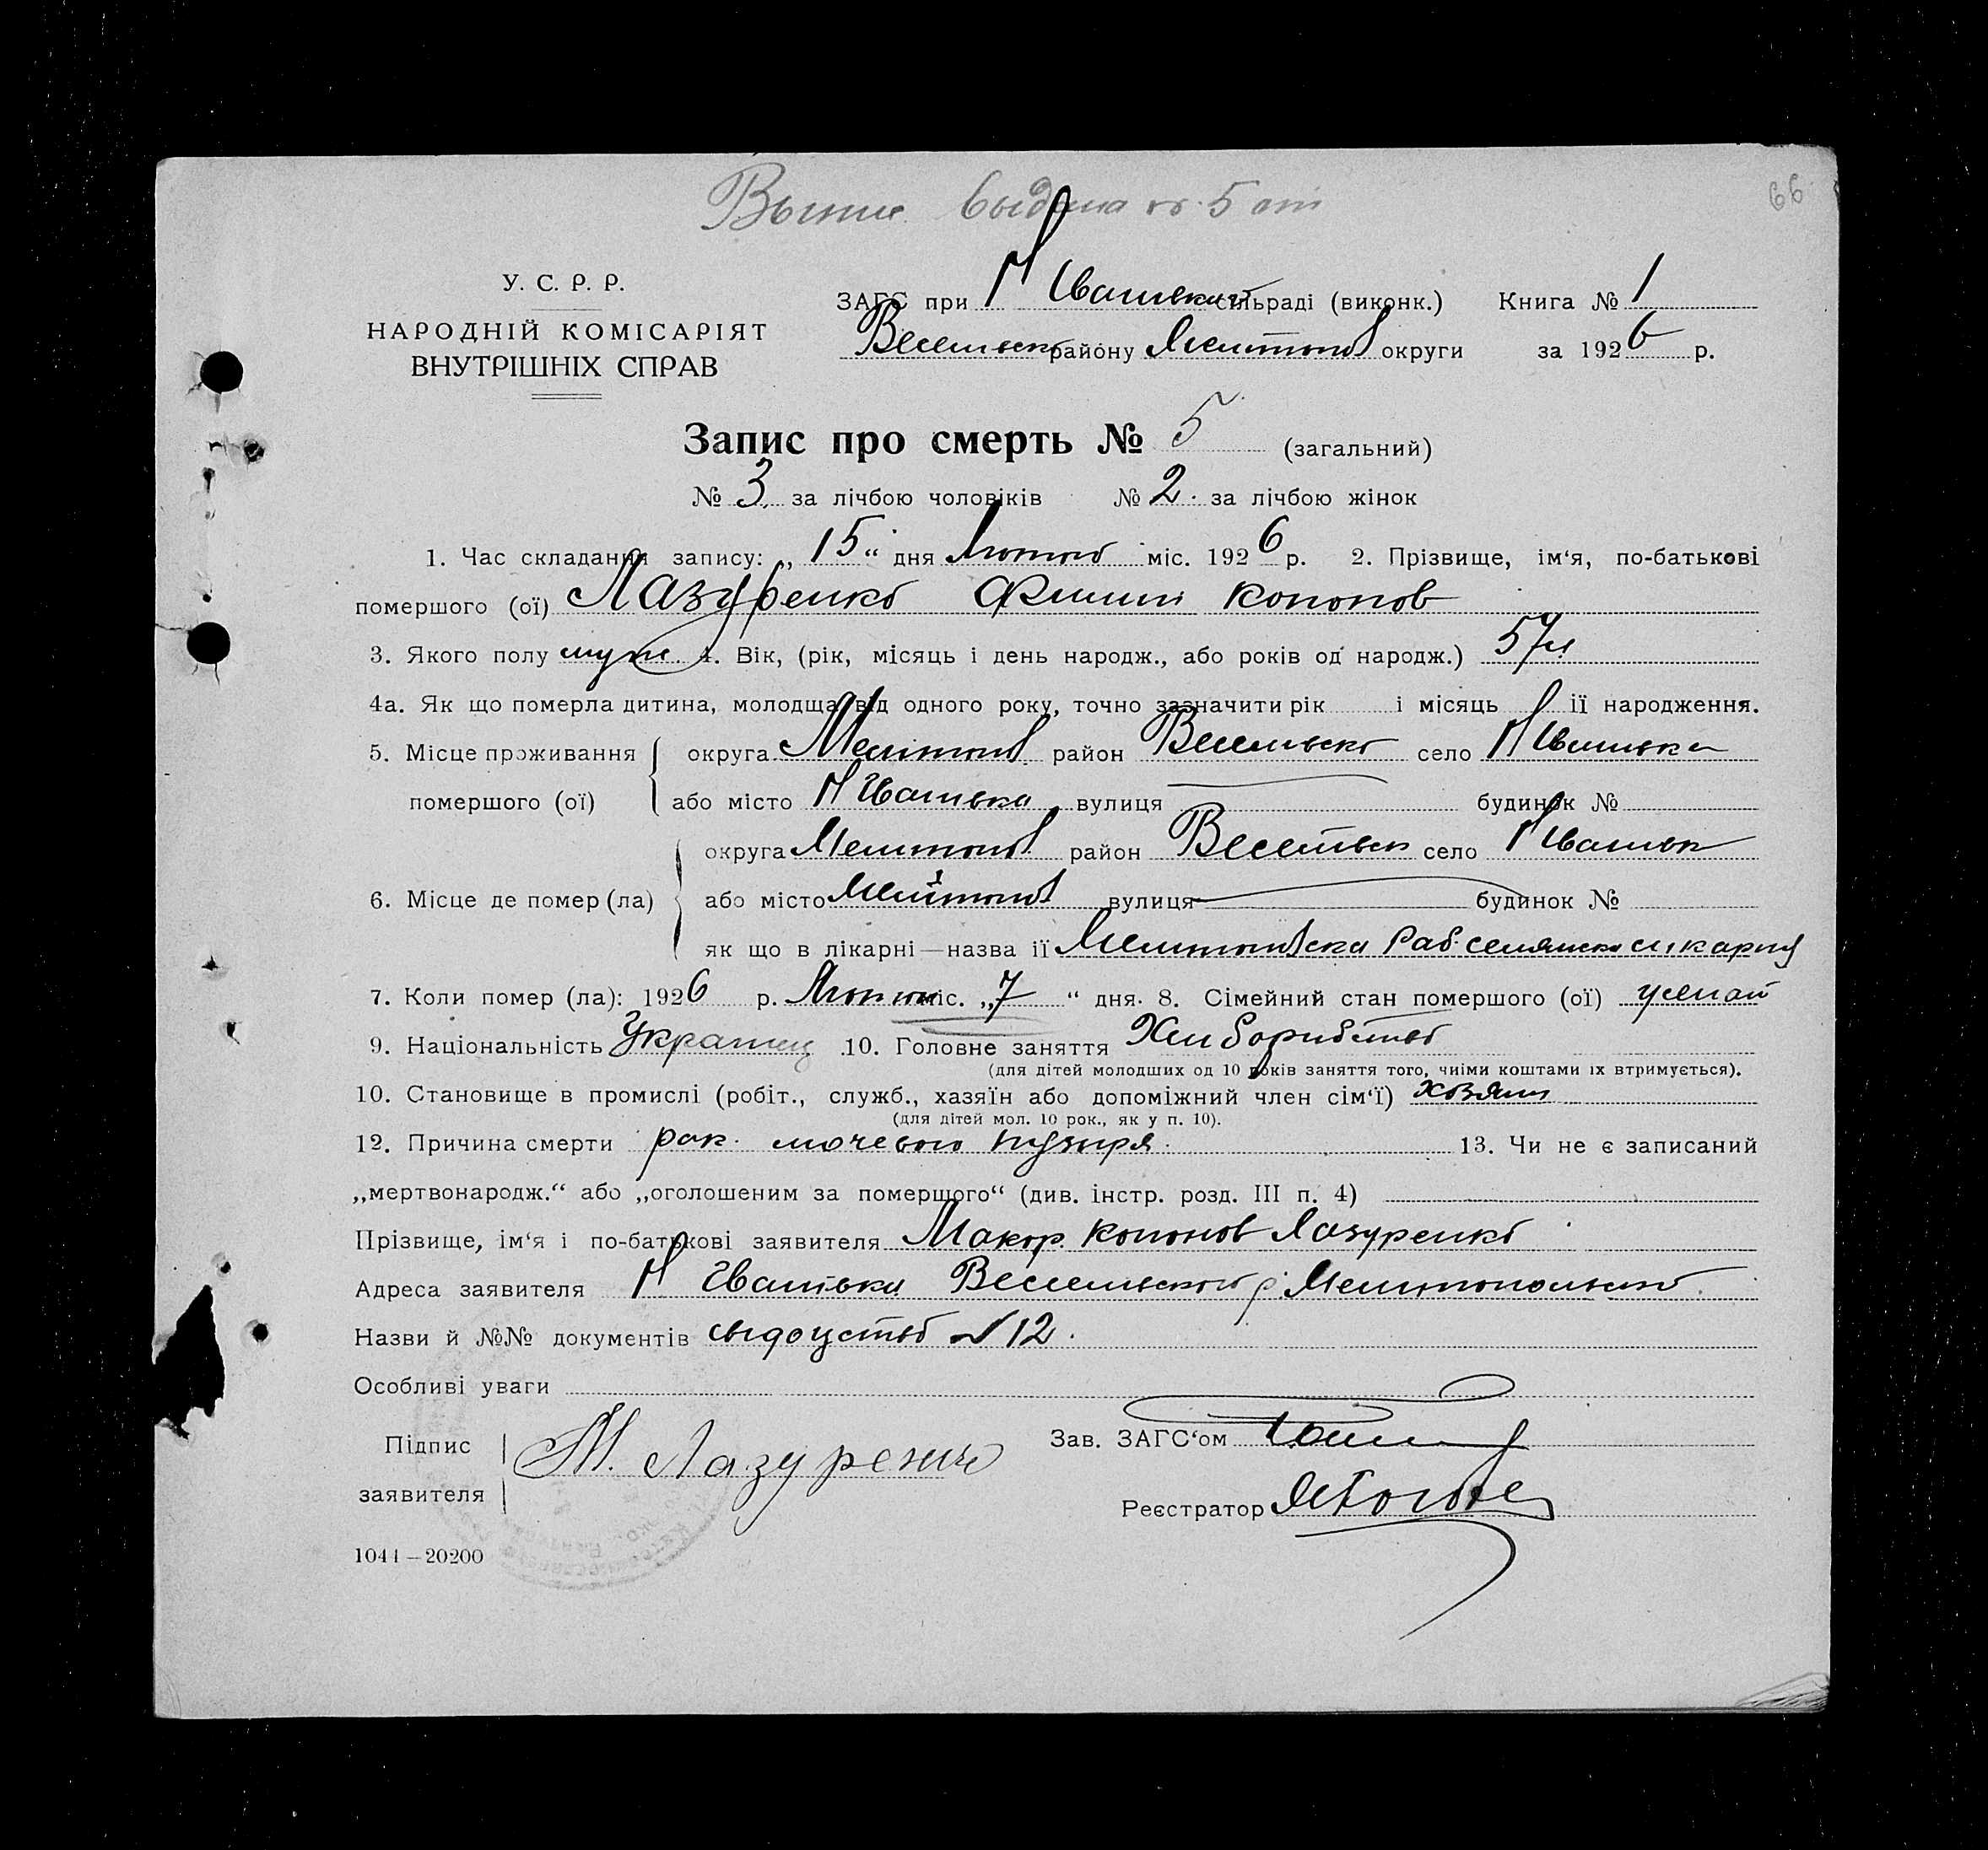 выдана № 5
66
У. С. Р. Р.
НАРОДНІЙ КОМІСАРІЯТ
ВНУТРІШНІХ СПРАВ
ЗАГС при сільраді (виконк.) Книга № 1
Весельск району Мелітопол округи за 1926 р.
Запис про смерть № 5 (загальний)
№ 3 за лічбою чоловіків № 2. за лічбою жінок
1. Час складання запису: „ 15 “ дня Лютого міс. 1926 р. 2. Прізвище, ім‘я, по-батькові
помершого (ої) Лазуренко Филип Кононов
3. Якого полу муж 4. Вік, (рік, місяць і день народж., або років од народж.) 57
4а. Як що померла дитина, молодша від одного року, точно зазначити рік і місяць її народження.
5. Місце проживання округа Мелітопол район Весельско село
помершого (ої) або місто вулиця будинок №
округа Мелітопол район Весельск село
6. Місце де помер (ла) або місто Мелітопол вулиця будинок №
як що в лікарні — назва її Мелитопольска Раб. селянска
7. Коли помер (ла): 1926 р. міс. „ 7 “ дня. 8. Сімейний стан помершого (ої)
9. Національність Украинец 10. Головне заняття Хлиборибство
(для дітей молодших од 10 років заняття того, чиїми коштами їх втримується).
10. Становище в промислі (робіт., служб., хазяїн або допоміжний член сім‘ї)
(для дітей мол. 10 рок., як у п. 10).
12. Причина смерти рак мочевого пузыря. 13. Чи не є записаний
„мертвонародж.“ або „оголошеним за помершого“ (див. інстр. розд. III п. 4)
Прізвище, ім‘я і по-батькові заявителя Макар Кононов Лазуренко
Адреса заявителя Весельского р. Мелитопольско
Назви й №№ документів свідоцтво № 12.
Особливі уваги
Підпис
заявителя М. Лазуренко
Зав. ЗАГС‘ом
Реєстратор
1044 — 20200